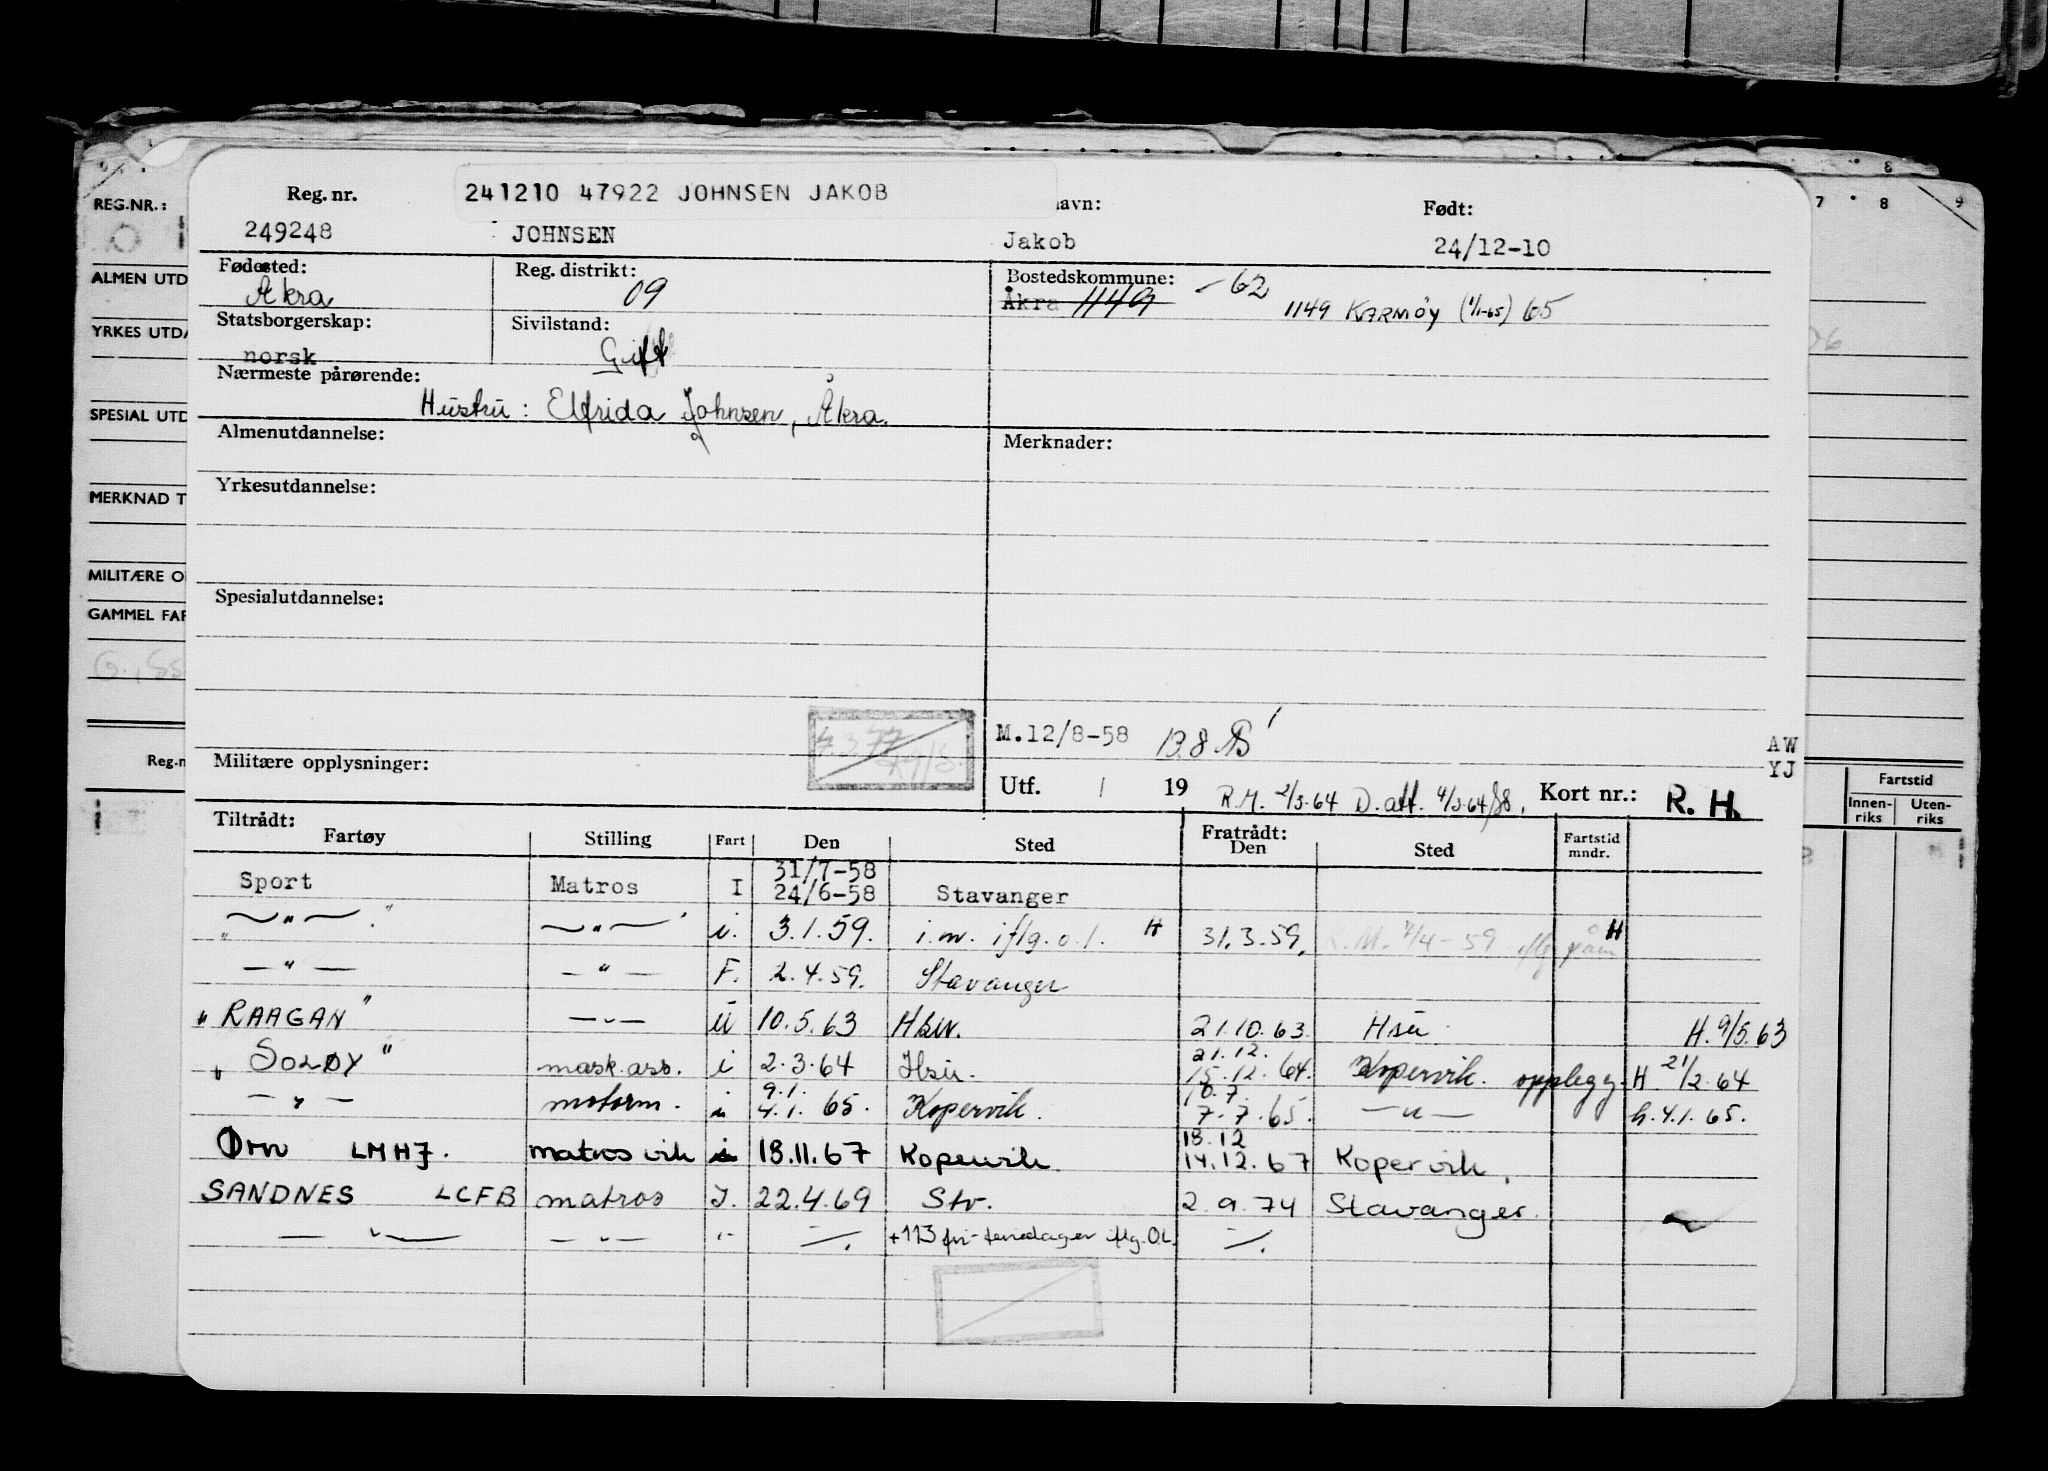 7 8 8 9
REG.NR.:
Reg. nr. 241210 47922 JOHNSEN JAKOB avn: Født:
249248 JOHNSEN Jakob 24/12-10
ALMEN UTD
Fødested: Reg. distrikt: Bostedskommune:
Åkra 09 Åkra 1149 -62 1149 KARMØY (1/1-65) 65
YRKES UTDA
Statsborgerskap: Sivilstand:
norsk Gift
Nærmeste pårørende:
Hustru: Elfrida Johnsen, Åkra.
SPESIAL UTD
Almenutdannelse: Merknader:
Yrkesutdannelse:
MERKNAD T
MILITÆRE O
Spesialutdannelse:
GAMMEL FAR
M.12/8-58
Militære opplysninger: 4.3.77
AW
YJ
Reg.n
Utf. / 19 R.M. 2/3-64 D.att. 4/3-64 Kort nr.: R. H.
Fartstid
Innenriks Utenriks
Tiltrådt: Fratrådt:
Fartøy Stilling Fart Den Sted Den Sted Fartstid mndr.
Sport Matros I 31/7-58 24/6-58 Stavanger
— " — — " — i. 3.1.59. i.m. iflg. o.l. H 31.3.59. R.M. 7/4-59 H
— " — — " — F. 2.4.59. Stavanger
"RAAGAN" — " — ii 10.5.63 Hsv. 21.10.63 Hsu. H. 9/5.63
"SOLØY" mask.ass. i 2.3.64 Hsu. 21.12. 15.12.64. Kopervik. opplegg. H 21/2.64
— " — motorm. i 9.1. 4.1. 65. Kopervik. 10.7. 7.7.65. — " — h. 4.1.65.
Ørn LMHJ. matros vik i 18.11.67 Kopervik. 18.12 14.12.67 Kopervik.
SANDNES LCFB matros I. 22.4.69 Stv. 2.9.74 Stavanger.
— " — — " — " -/. +113 fri-feriedager iflg. O.L. -/.